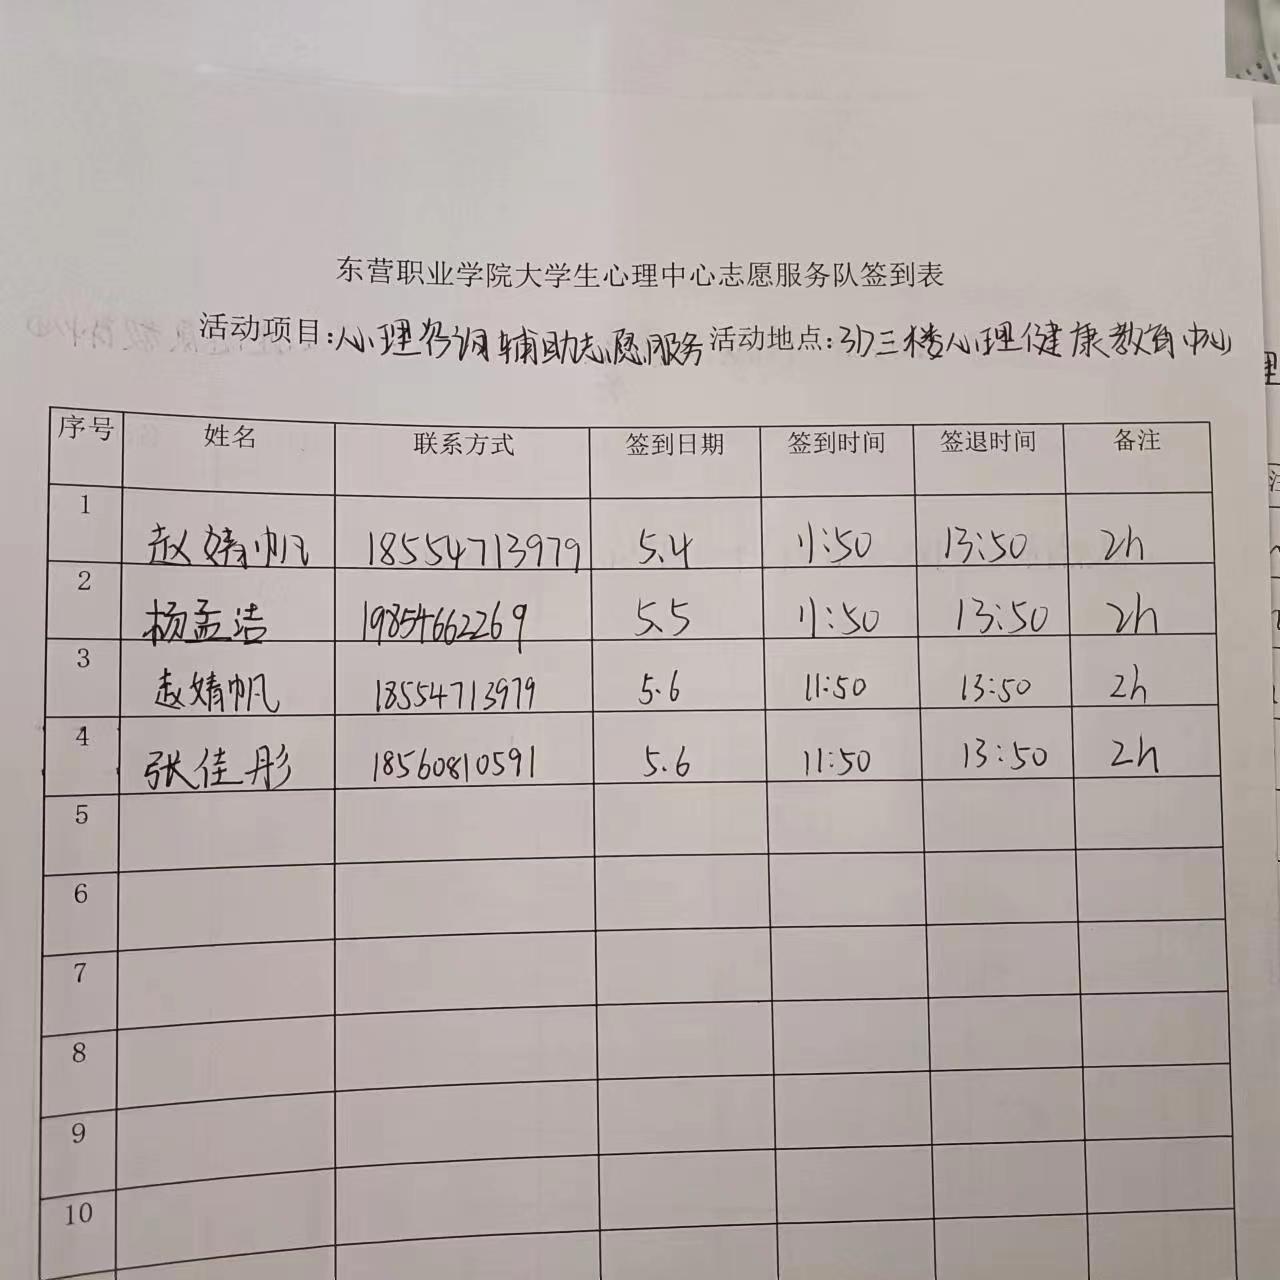 东营职业学院大学生心理中心志愿服务队签到表
活动项目:心理咨询辅助志愿服务 活动地点:3D三楼心理健康教育中心
序号 姓名 联系方式 签到日期 签到时间 签退时间 备注
1 赵婧帆 18554713979 5.4 11:50 13:50 2h
2 杨孟洁 19854662269 5.5 11:50 13:50 2h
3 赵婧帆 18554713979 5.6 11:50 13:50 2h
4 张佳彤 18560810591 5.6 11:50 13:50 2h
5
6
7
8
9
10
理
注